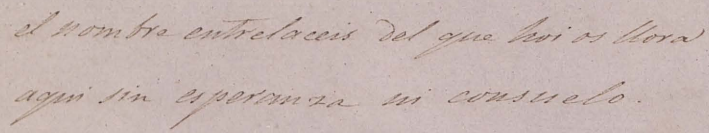 el nombre entrelaceis del que hoi os llora
aqui sin esperanza ni consuelo.